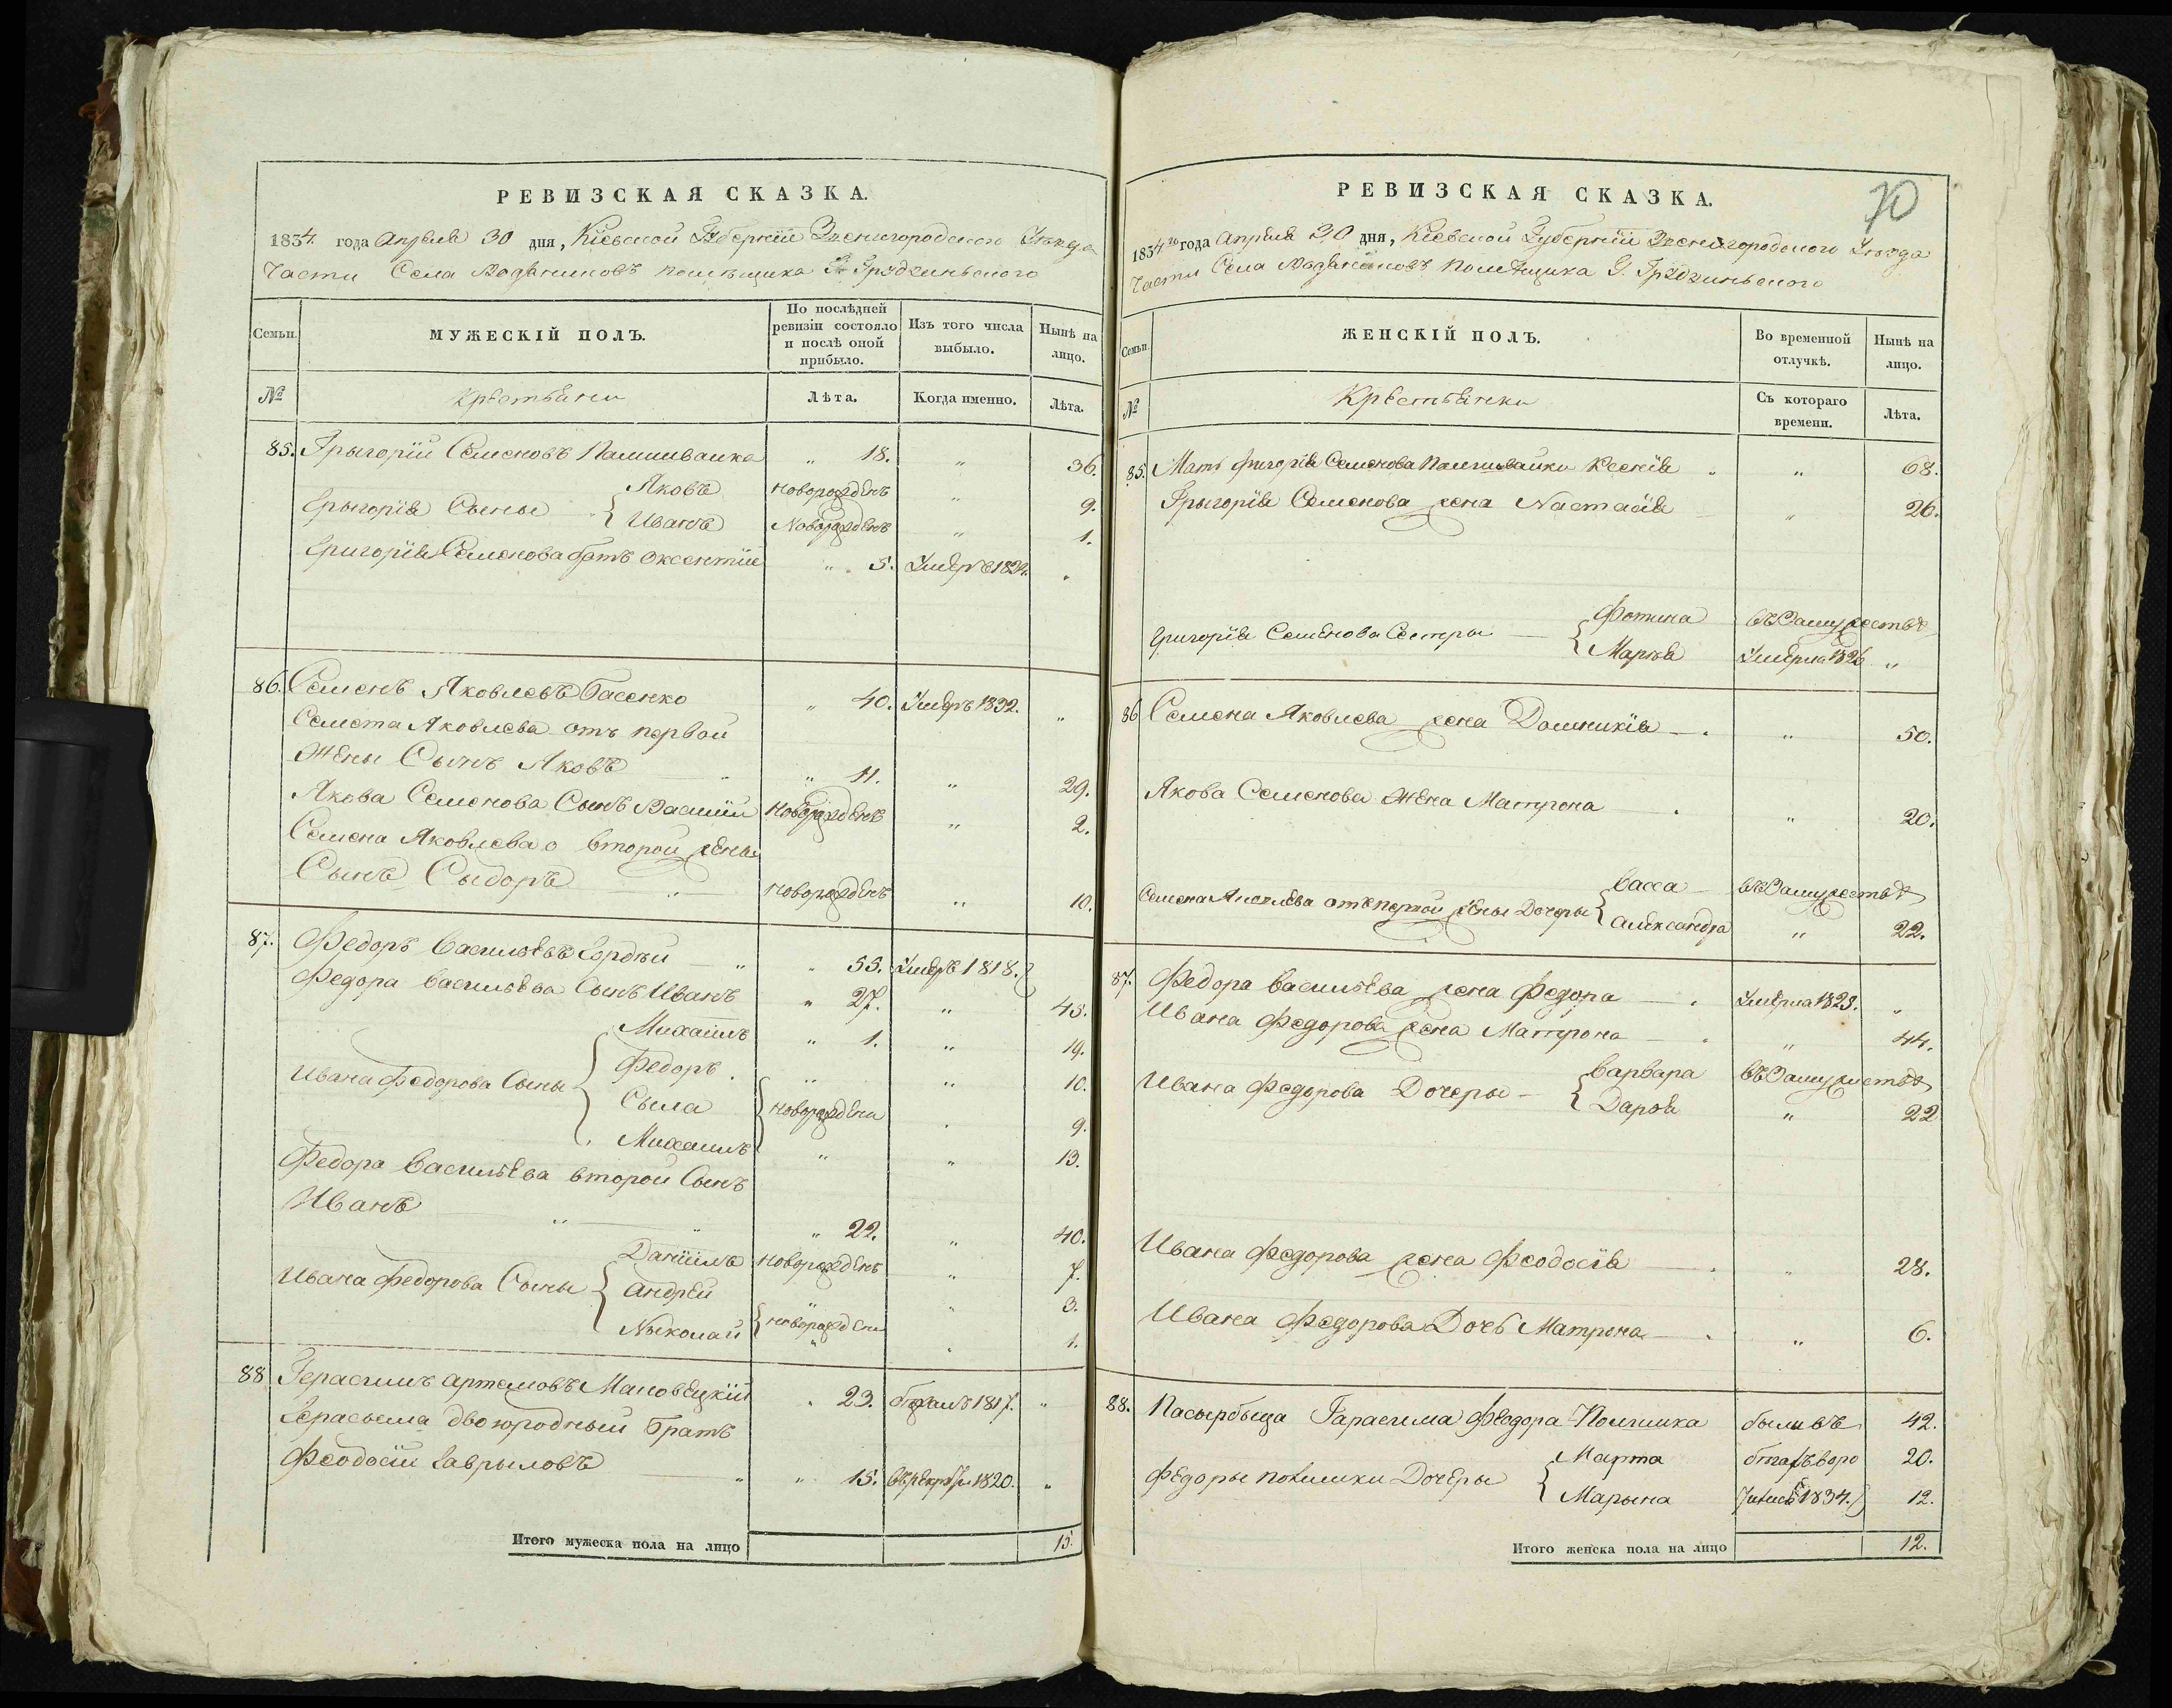 РЕВИЗСКАЯ СКАЗКА.
1834. года Апреля 30 дня, Кіевской Губерніи Звенигородского Уезда
Части Села Водяниковъ помѣщика Грудзинского
Семьи.
МУЖЕСКІЙ ПОЛЪ.
По послѣдней ревизіи состояло и послѣ оной прибыло.
Изъ того числа выбыло.
Нынѣ на лицо.
№
Крестьяни
Лѣта.
Когда именно.
Лѣта.
85. Грыгорій Семеновъ Памшивайка " 18. " 36.
Грыгорія Сыны { Яковъ новорожденъ " 9.
Иванъ новорожденъ " 1.
Григорія Семенова братъ Оксентій " 5. Умеръ 1824. "
86. Семенъ Яковлевъ Басенко " 40. Умеръ 1832. "
Семена Яковлева отъ первой
жены Сынъ Яковъ " 11. " 29.
Якова Семенова Сынъ Василій новорожденъ " 2.
Семена Яковлева о второй жены
Сынъ Сыдоръ новорожденъ " 10.
87. Федоръ Васильевъ Гордѣй " 55. Умеръ 1818.
Федора Васильева Сынъ Иванъ " 27. " 43.
Ивана Федорова Сыны { Михаилъ " 1. " 19.
Федоръ " " 10.
Сыла новорождени " 9.
Михаилъ " " 13.
Федора Васильева второй Сынъ
Иванъ " 22. " 40.
Ивана Федорова Сыны { Даніилъ новорожденъ " 7.
Андрей " 3.
Ныколай новорождени " 1.
88. Герасимъ Артемовъ Маковецкій " 23. бежалъ 1817. "
Герасыма двоюродный братъ
Феодосій Гаврыловъ " 15. въ рекруты 1820. "
Итого мужеска пола на лицо 15.
РЕВИЗСКАЯ СКАЗКА.
70
1834го года Апреля 30 дня, Кіевской Губерніи Звенигородского Уезда
Части Села Водяниковъ Помѣщика Грудзинского
Семьи.
ЖЕНСКІЙ ПОЛЪ.
Во временной отлучкѣ.
Нынѣ на лицо.
№
Крестьянки
Съ котораго времени.
Лѣта.
85. Мать Григорія Семенова Памшивайки Ксенія " 68.
Грыгорія Семенова жена Настасія " 26.
Григорія Семенова Сестры { Фотина въ замужествѣ
Марія Умерла 1826 "
86 Семена Яковлева жена Домникія " 50.
Якова Семенова жена Матрона " 20.
Семена Яковлева отъ первой жены Дочеры { Васса въ замужествѣ
Александра " 22.
87. Федора Васильева жена Федора Умерла 1823. "
Ивана Федорова жена Матрона " 44.
Ивана Федорова Дочеры { Варвара въ замужествѣ
Дарія " 22
Ивана Федорова жена Феодосія " 28.
Ивана Федорова Дочь Матрона " 6.
88. Пасырбыца Гарасима Феодора 42.
Федоры Дочеры { Марта 20.
Марына 1834. 12.
Итого женска пола на лицо 12.